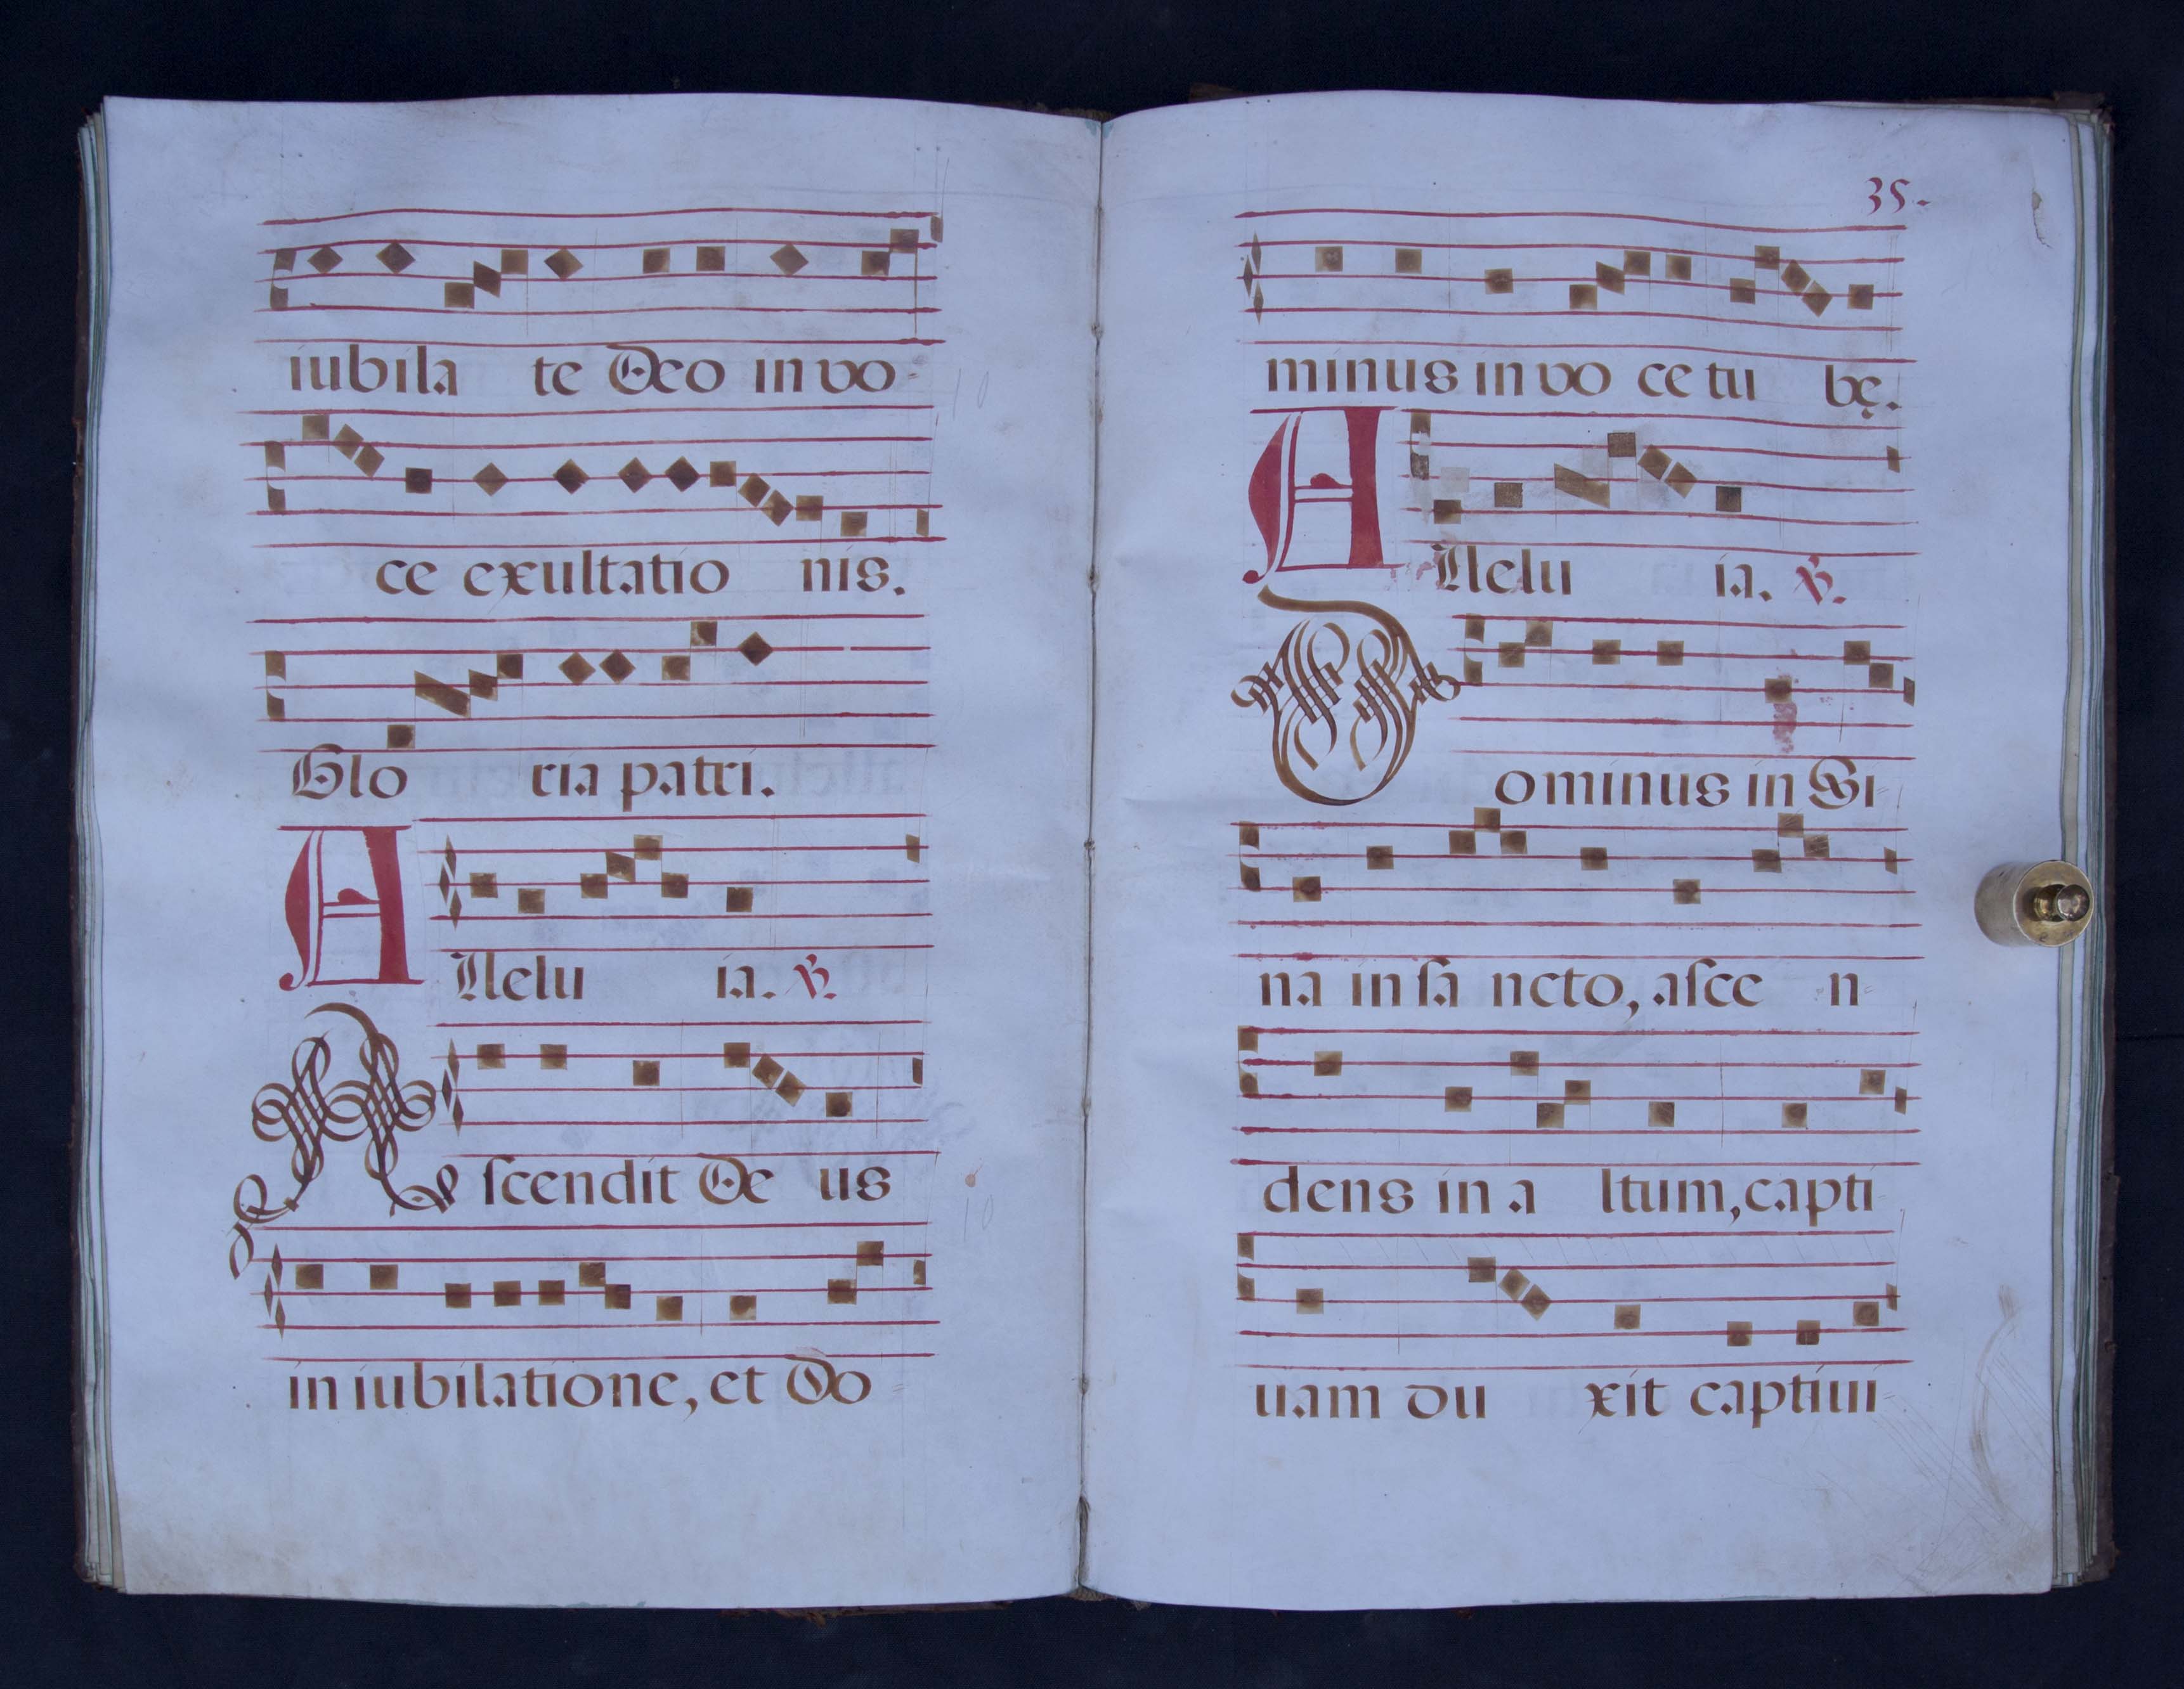 iubila te Deo in vo-
ce exultatio nis.
Glo ria patri.
Allelu ia. ℣.
Ascendit De us
in iubilatione, et Do
35.
minus in vo ce tu bę.
Allelu ia. ℣.
Dominus in Si
na in ſa ncto, aſce n
dens in a ltum, capti
uam du xit captiui